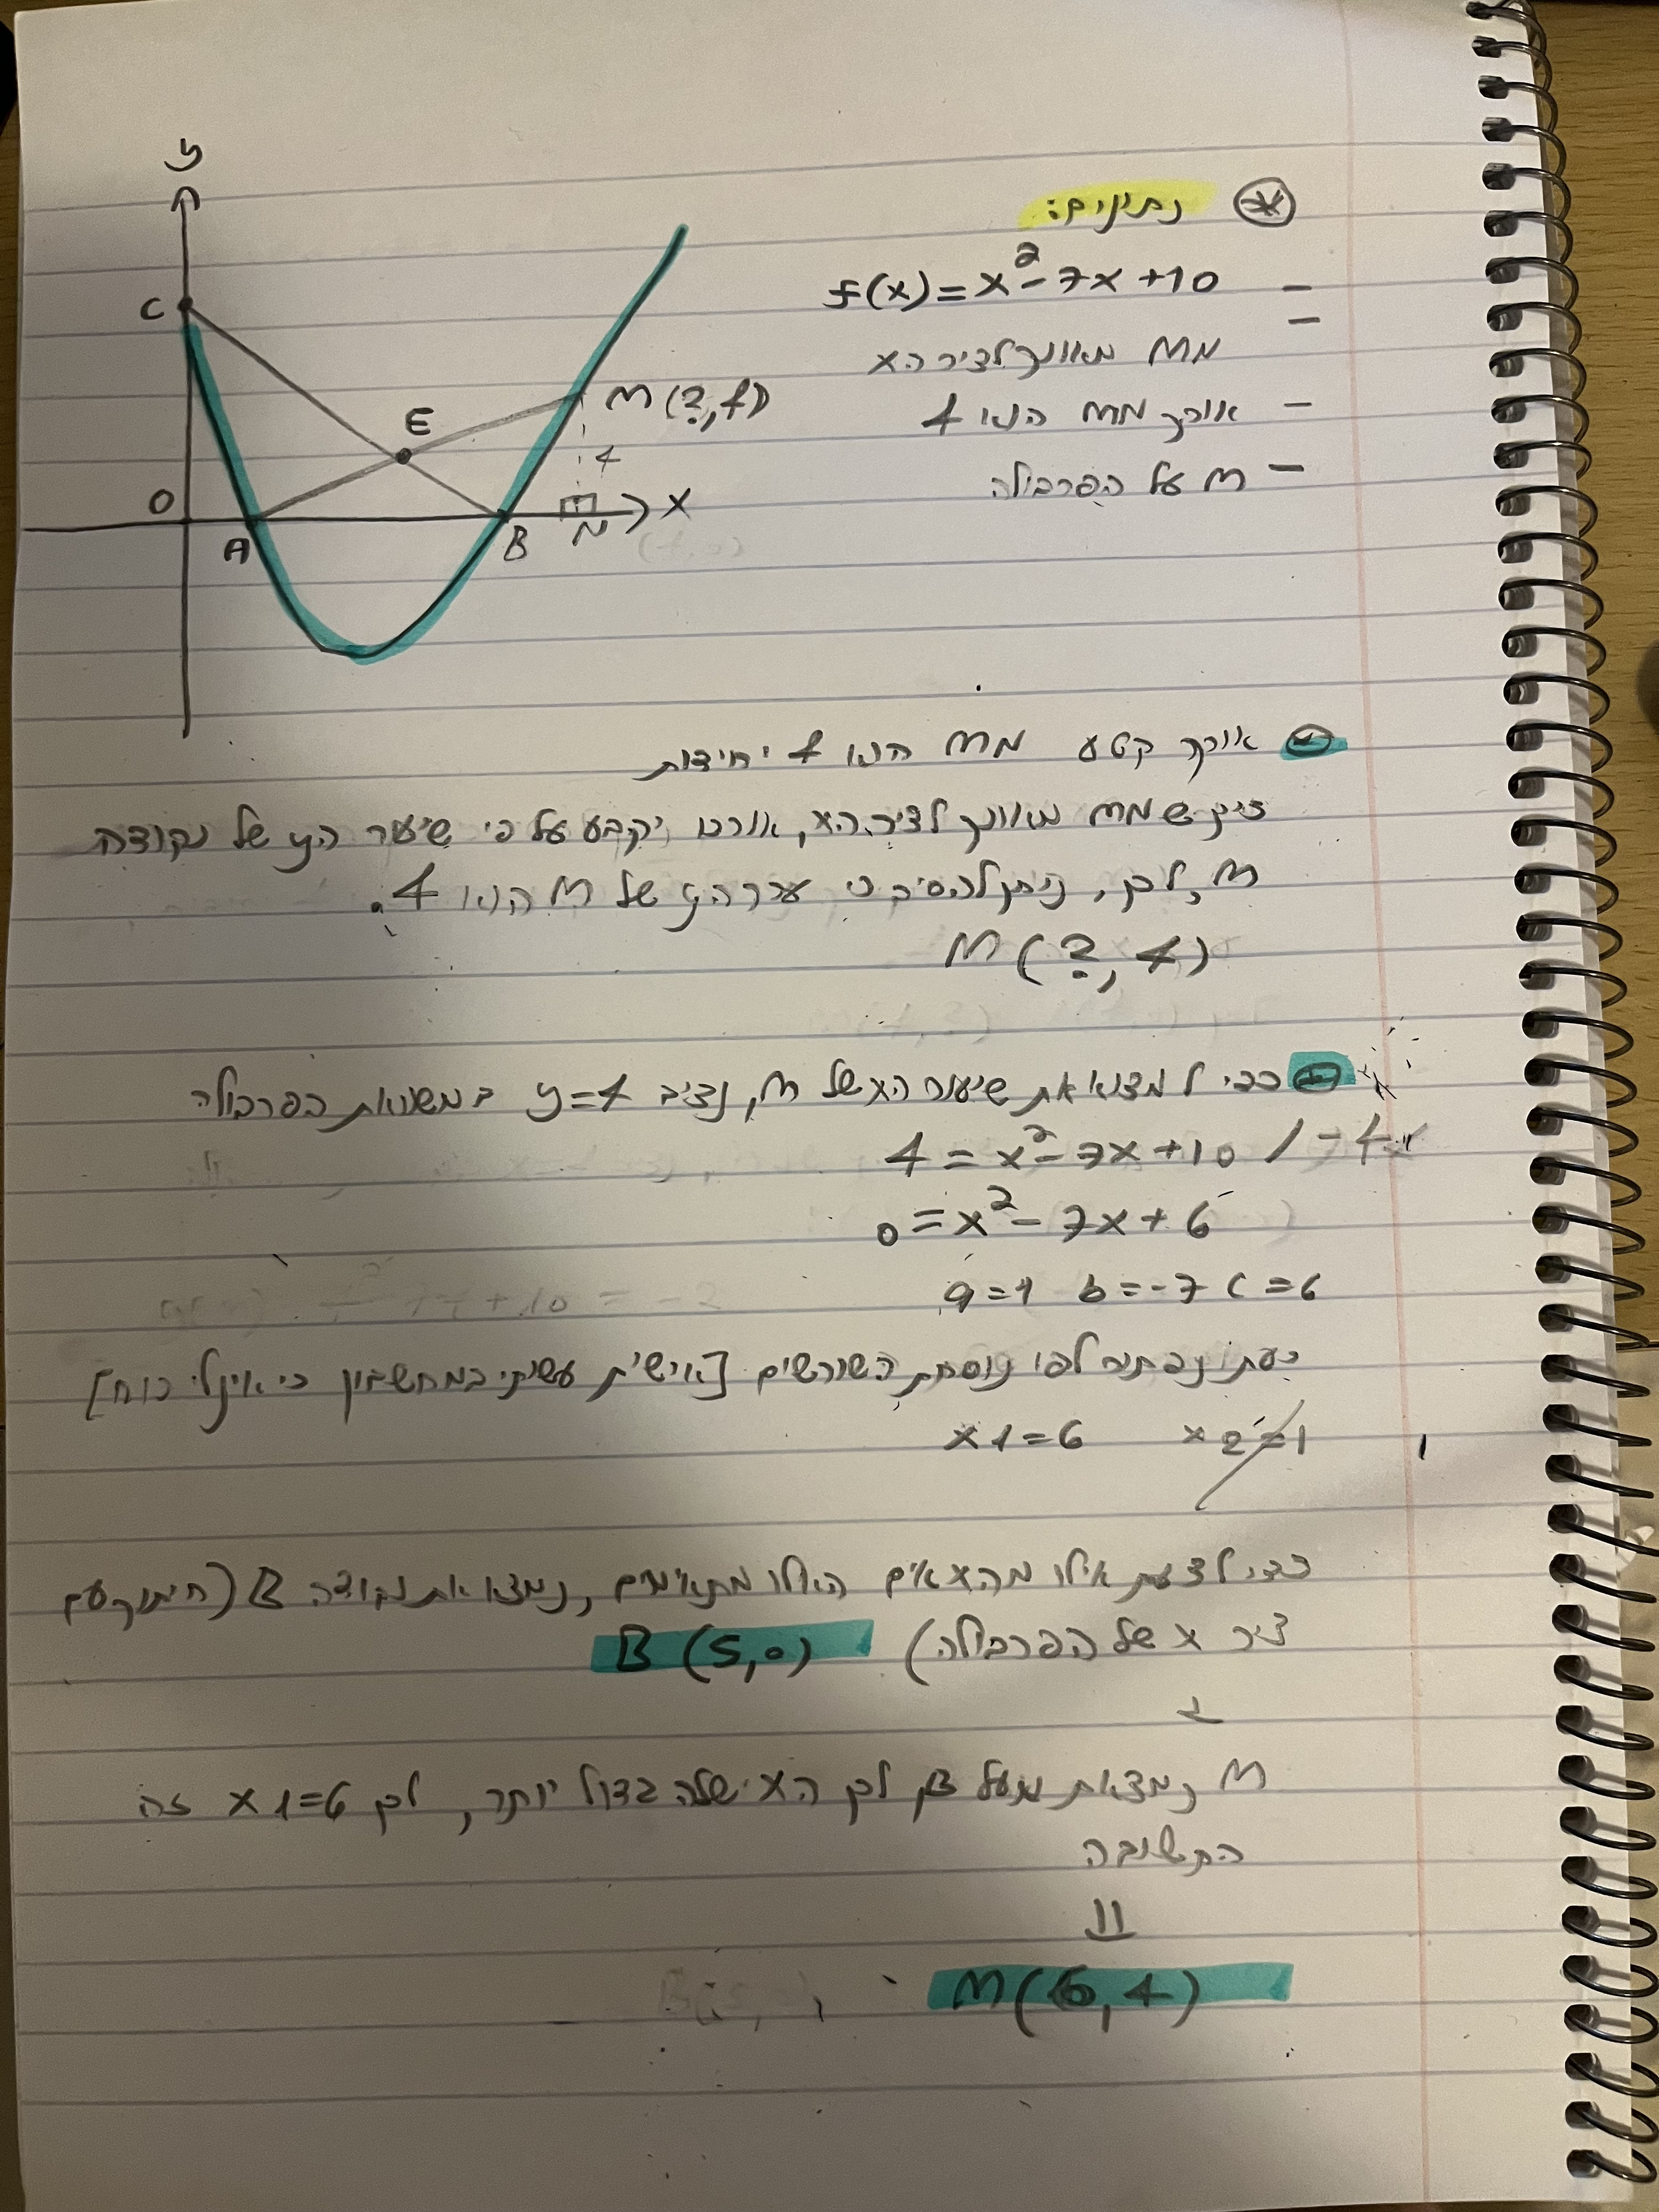 y
C
E
M (?, 4)
4
O
x
A
B
N
נתונים:
f(x) = x² - 7x + 10 -
-
MN מאונך לציר הx
- אורך MN הוא 4
- M על הפרבולה
אורך קטע MN הוא 4 יחידות
כיוון ש MN מאונך לציר הx, אורכו יקבע על פי שיעור הy של נקודה
M, לכן, ניתן להסיק כי ערך הy של M הוא 4.
M (?, 4)
כדי למצוא את שיעור הx של M, נציב y=4 במשוואת הפרבולה
4 = x² - 7x + 10 / -4
0 = x² - 7x + 6
a=1 b=-7 c=6
כעת נפתור לפי נוסחת השורשים [אישית עשיתי במחשבון כי אין לי כוח]
x1=6 x2=1
כדי לדעת אילו מהxאים האלו מתאימים, נמצא את נקודה B (חיתוך עם
ציר x של הפרבולה) B (5,0)
M נמצאת מעל B, לכן הx שלה גדול יותר, לכן x1=6 זה
התשובה
M(6,4)